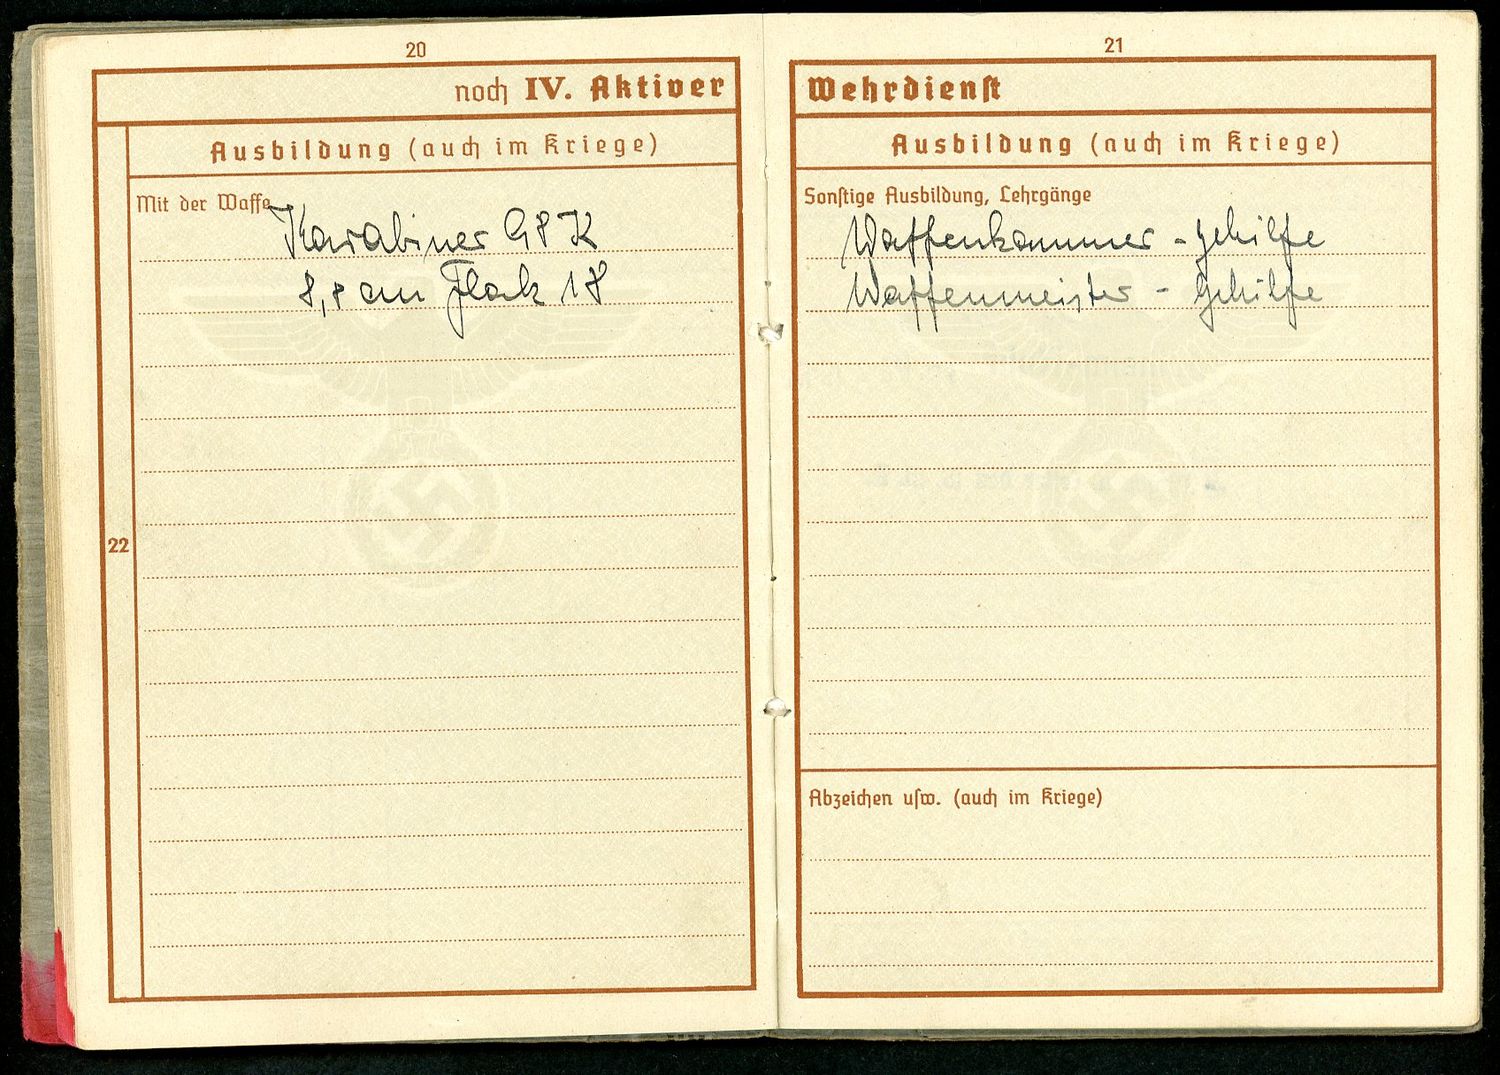 20
noch IV. Aktiver
Ausbildung (auch im Kriege)
Mit der Waffe
Karabiner 98 K
8,8 cm Flak 18
22
21
Wehrdienst
Ausbildung (auch im Kriege)
Sonstige Ausbildung, Lehrgänge
Waffenkammer - gehilfe
Waffenmeister - Gehilfe
Abzeichen usw. (auch im Kriege)